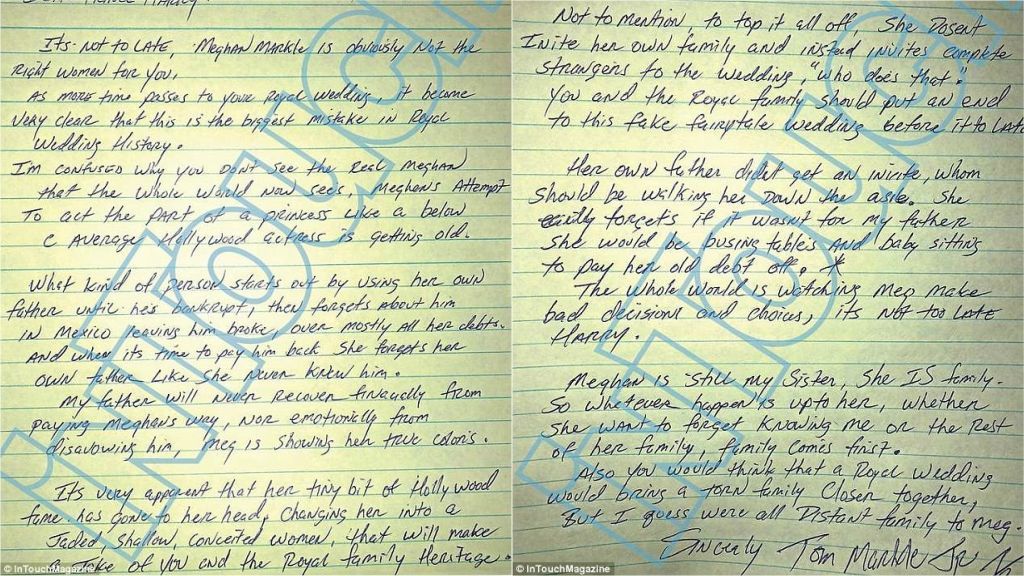 Dear Prince Harry.
Its not to LATE, Meghan Markle is obviously Not the
Right women for you.
As more time passes to your Royal Wedding, it became
very clear that this is the biggest mistake in Royal
Wedding History.
I'm confused why you don't see the Real Meghan
that the whole world now sees, Meghans Attempt
To act the part of a princess Like a below
C Average Hollywood actress is getting old.
What kind of person starts out by using her own
father until he's bankrupt, then forgets about him
in Mexico leaving him broke, over mostly all her debts.
And when its time to pay him back she forgets her
own father Like she never knew him.
My father will never recover financially from
paying Meghans way, nor emotionally from
disavowing him, Meg is showing her true colors.
It's very apparent that her tiny bit of Hollywood
fame has gone to her head, Changing her into a
Jaded, Shallow, conceited women, that will make
a Joke of you and the Royal family Heritage.
Not to mention, to top it all off, She Dosent
Invite her own family and instead invites complete
strangers to the wedding, "who does that."
You and the Royal family should put an end
to this fake fairytale wedding before it to Late
Her own father didnt get an invite, whom
Should be walking her down the aisle. She
forgets if it wasnt for my father
She would be busing tables And baby sitting
to pay her old debt off. *
The whole world is watching Meg make
bad decisions and choices, its NOT too LATE
HARRY.
Meghan is still my Sister, She IS family.
So whatever happen is upto her, whether
She want to forget knowing me or the Rest
of her family, family comes first.
Also you would think that a Royal wedding
would bring a torn family closer together,
But I guess were all Distant family to Meg.
Sincerly Tom Markle Jr.
InTouch
InTouch
© InTouchMagazine
© InTouchMagazine